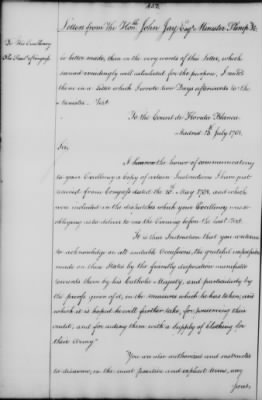 Letters from The Honble John Jay Esqr Minister Plenip &c
To His Excellency
The Presidt of Congress
is better made, than in the very words of this letter, which
seemed exceedingly well calculated for the purpose, I recited
them in a letter which I wrote two Days afterwards to the
Minister. Viz.
To the Count de Florida Blanca
Madrid 2d July 1781.
Sir,
I have now the honor of communicating
to your Excellency a copy of certain Instructions I have just
received from Congress dated the 28th May 1781, and which
were included in the dispatches which your Excellency was so
obliging as to deliver to me the Evening before the last. Viz.
"It is their Instruction that you continue
to acknowledge on all suitable Occasions, the grateful impression
made on these States by the friendly disposition manifested
towards them by his Catholic Majesty, and particularly by
the proofs given of it, in the measures which he has taken, and
which it is hoped he will further take, for preserving their
credit; and for aiding them with a supply of Clothing for
their Army."
You are also authorised and instructed
to disavow, in the most positive and explicit terms, any